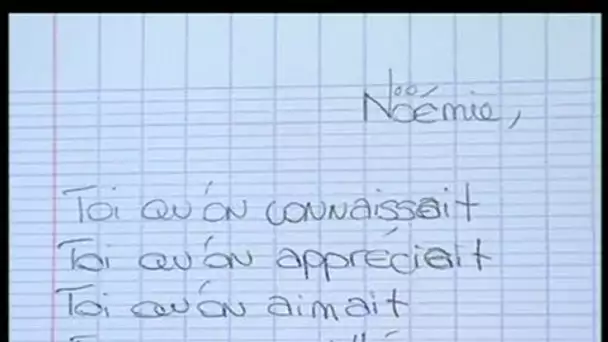 Nöémie,
Toi qu'on connaissait
Toi qu'on appréciait
Toi qu'on aimait